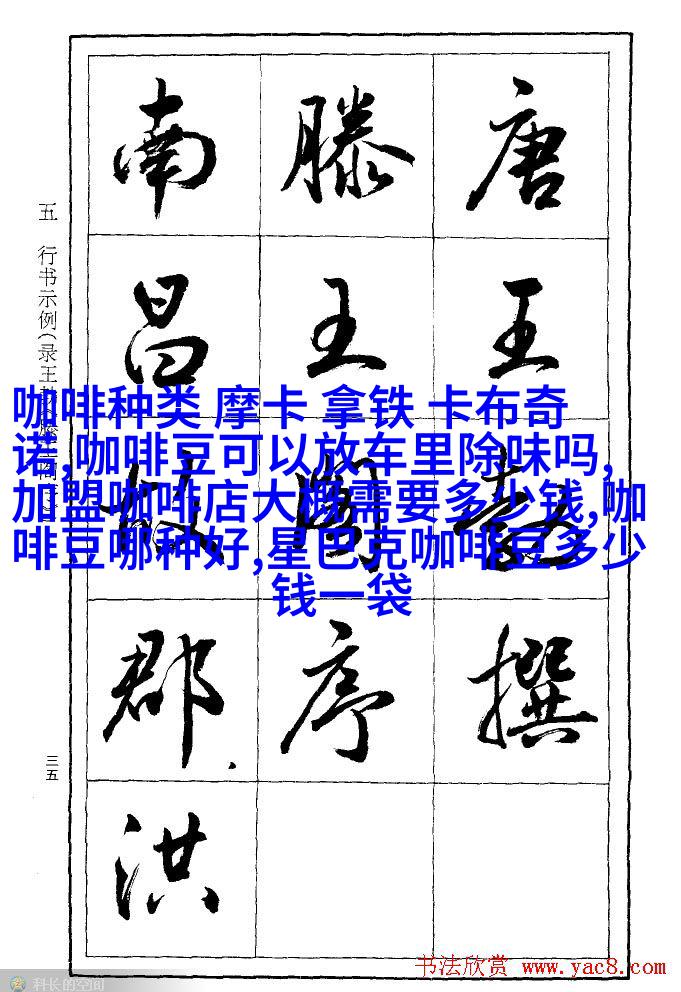 唐王勃撰
滕王阁序
南昌故郡.洪
五 行书示例(录王勃《滕王阁序》)
三五
咖啡种类 摩卡 拿铁 卡布奇
诺,咖啡豆可以放车里除味吗,
加盟咖啡店大概需要多少钱,咖
啡豆哪种好,星巴克咖啡豆多少
钱一袋
科长的空间
书法欣赏 www.yac8.com